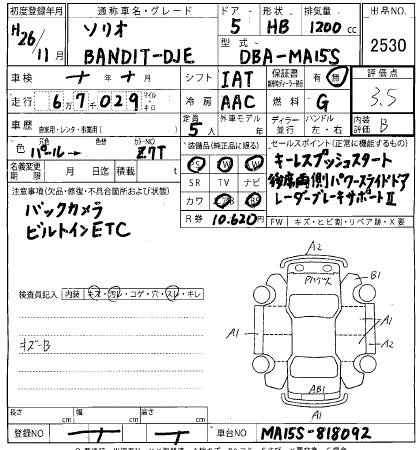 初度登録年月 通称車名・グレード ドア 形状 排気量 出品NO.
H26/11月 ソリオ BANDIT-DJE 5 HB 1200cc 2530
型式 DBA-MA15S
車検 年 月 シフト IAT 保証書 有 無 評価点 3.5
走行 67,029 マイル キロ 冷房 AAC 燃料 G
車歴 自家用・レンタ・教習用( ) 定員 5人 外車モデル 年 ディーラー 並行 ハンドル 左・右 内装評価 B
色 パール→ 色替 カラーNO. Z7T 装備品(純正品に限る) セールスポイント(正常に機能するもの)
名義変更期限 月 日 迄 積載 t PS PW AW キーレスプッシュスタート
注意事項(欠品・修復・不具合箇所および状態) SR TV ナビ 後席両側パワースライドドア
バックカメラ カワ レーダーブレーキサポートⅡ
ビルトインETC R券 10,620円 FW キズ・ヒビ割・リペア跡・X要
A2
B1
検査員記入 内装 キズ・汚レ・コゲ・穴・スレ・キレ
A1 A1
キズ-B A2
AB1
A1
長さ cm 幅 cm 高さ cm
登録NO 車台NO MA15S-818092